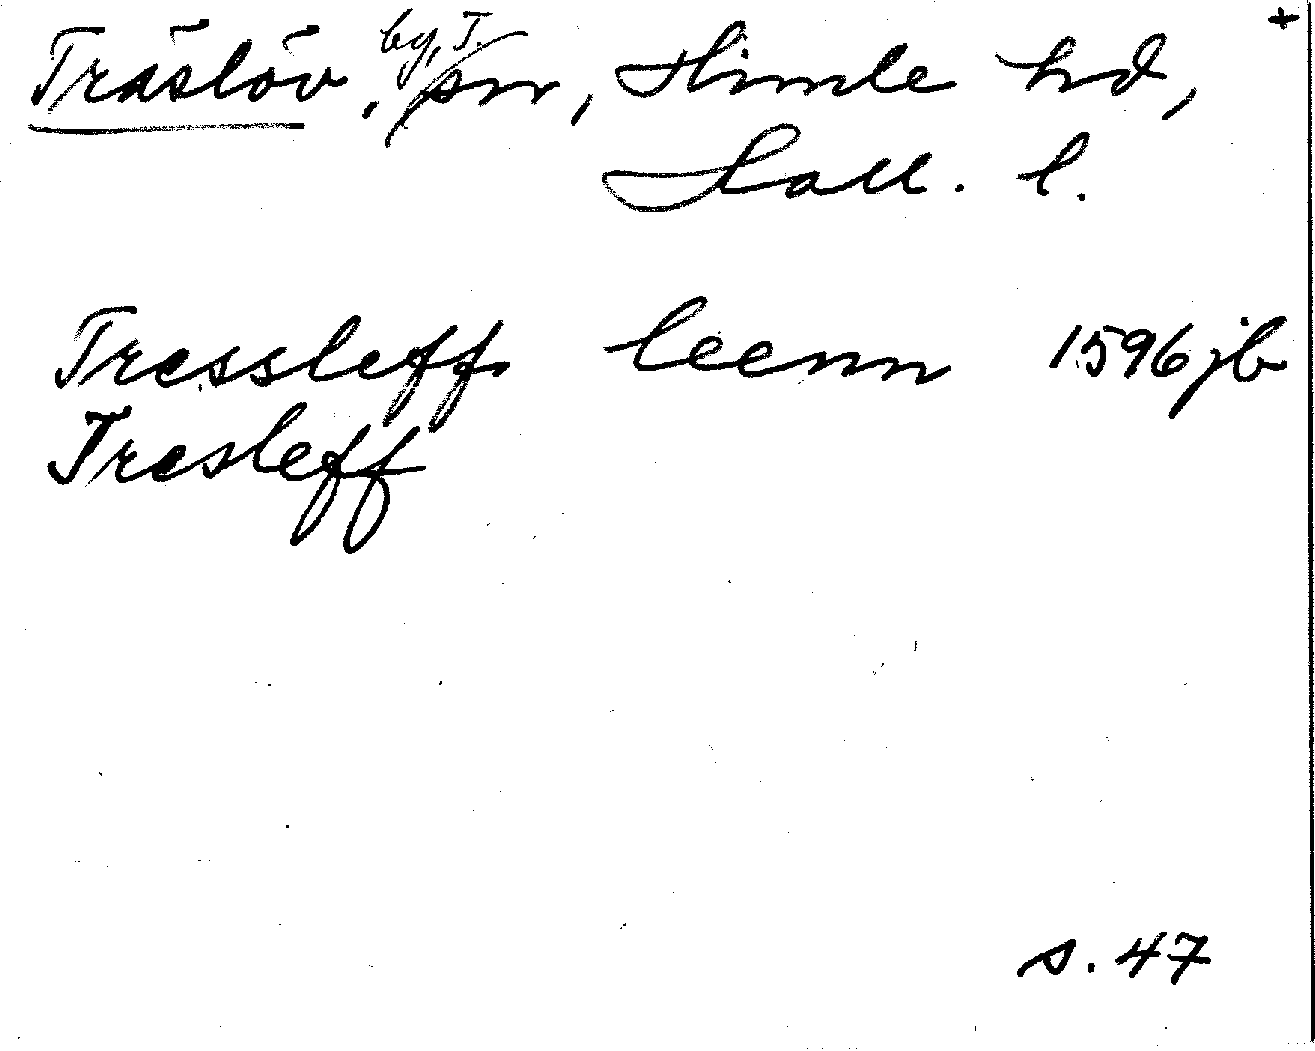 Träslöv, by, T. sn, Himle hd, +
Hall. l.
Tressleff leenn 1596 jb
Tresleff
s. 47